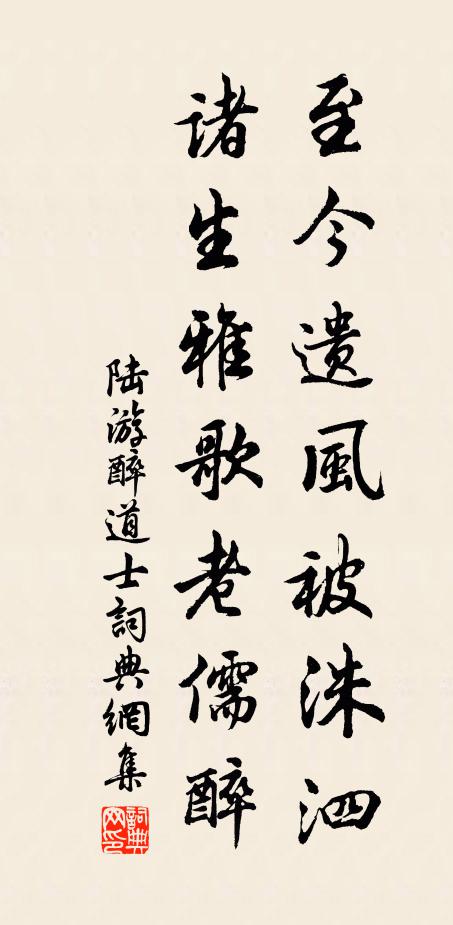 至今遺風被洙泗
諸生雅歌老儒醉
陸游醉道士詞典網集
詞典網印